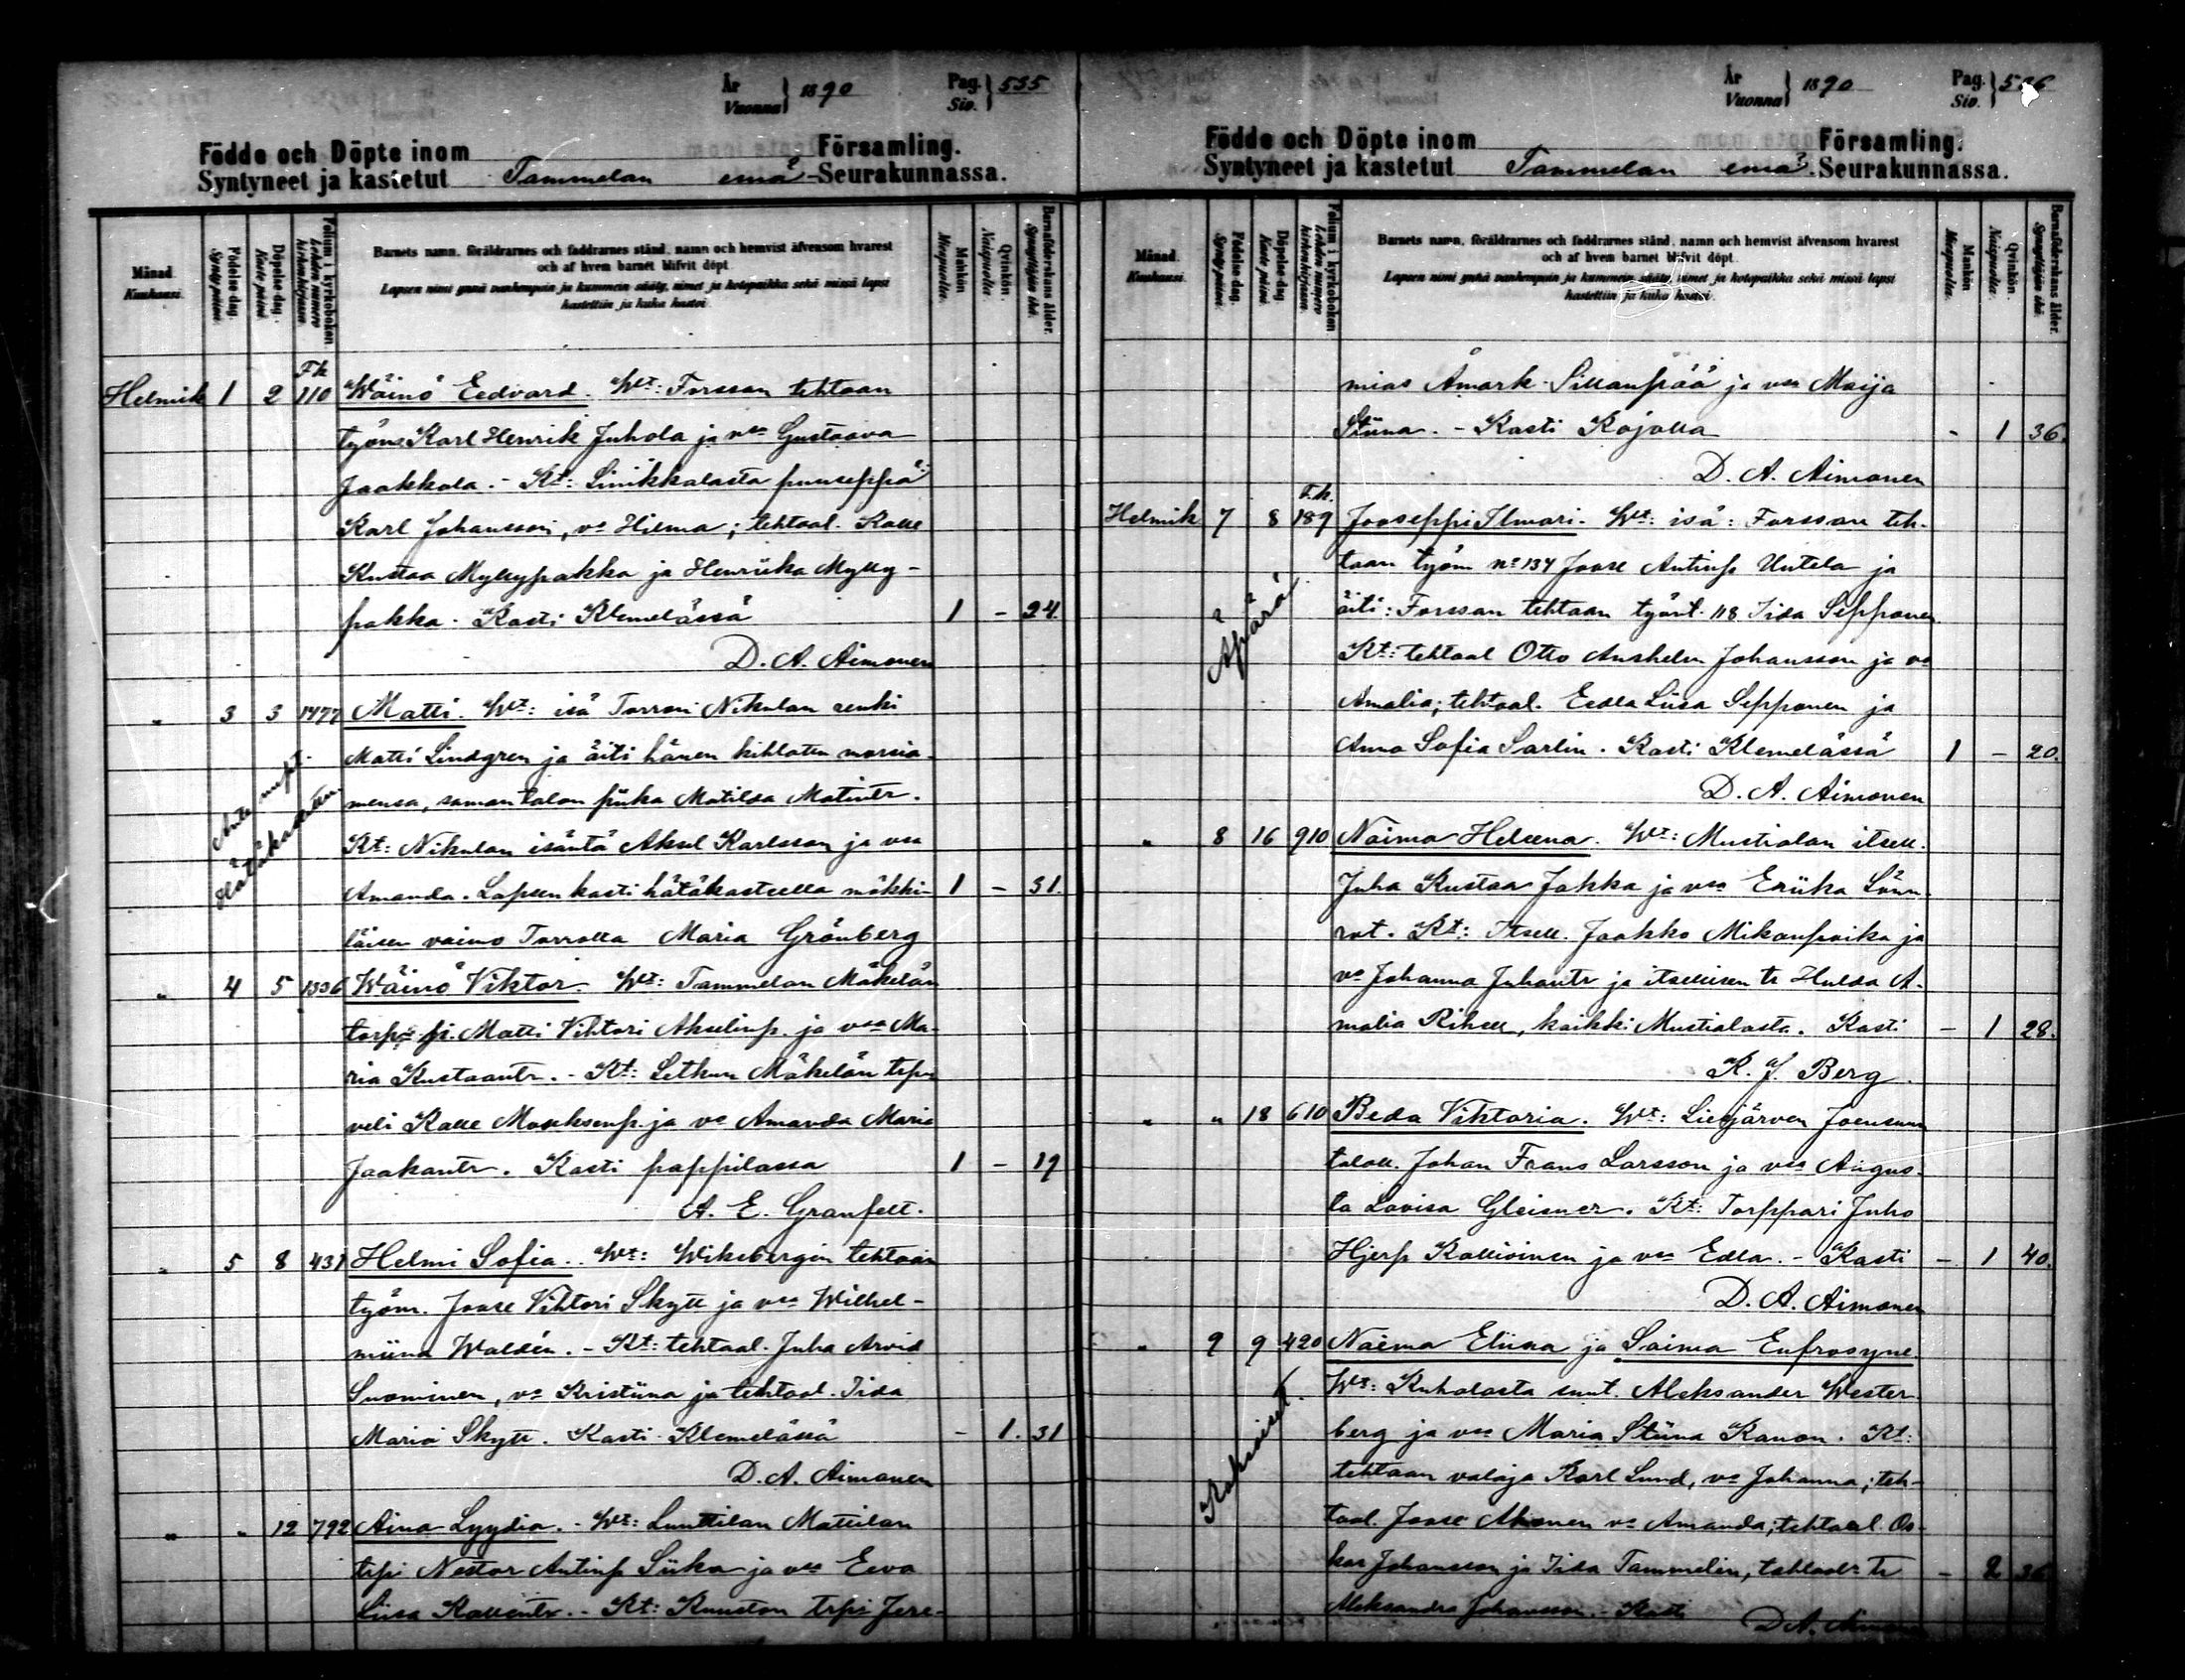 År Vuonna } 1890 Pag. Siv. } 535
Födde och Döpte inom Församling.
Syntyneet ja kastetut Tammelan emä-Seurakunnassa.
Månad. Kuukausi.
Födelse dag. Synty päivä.
Döpelse dag. Kaste päivä.
Folium i kyrkoboken Lehden numero kirkonkirjassa.
Barnets namn, föräldrarnes och faddrarnes stånd, namn och hemvist äfvensom hvarest
och af hvem barnet blifvit döpt.
Lapsen nimi ynnä vanhempain ja kummein sääty, nimet ja kotopaikka sekä missä lapsi
kastettiin ja kuka kastoi.
Mankön Miespuolta.
Qvinkön. Naispuolta.
Barnaföderskans ålder. Synnyttäjän ikä.
Helmik 1 2 F.k. 110 Wäinö Eedvard. Wt: Forssan tehtaan
työm Karl Henrik Juhola ja vo Gustaava
Jaakkola. - Kt: Linikkalasta puuseppä
Karl Johansson, vo Hilma; tehtaal. Kalle
Kustaa Myllypakka ja Henriika Mylly-
pakka. Kasti Klemelässä 1 - 24.
D. A. Aimonen
" 3 3 1477 Matti. Wt: isä Torron Nikulan renki
Matti Lindgren ja äiti hänen kihlattu morsia-
mensa, saman talon piika Matilda Matintr.
Kt: Nikulan isäntä Aksel Karlsson ja vsa
Amanda. Lapsen kasti hätäkasteella mökki- 1 - 31.
läisen vaimo Torrolla Maria Grönberg
Ante nupt.
Hätäkastettu
" 4 5 1336 Wäinö Viktor. Wt: Tammelan Mäkelän
torp. p. Matti Vihtori Akselinp. ja vsa Ma-
ria Kustaantr. - Kt: Letkun Mäkelän trpn
veli Kalle Mooksenp. ja vo Amanda Maria
Jaakontr. Kasti pappilassa 1 - 19
A. E. Granfelt.
" 5 8 431 Helmi Sofia. Wt: Wiksbergin tehtaan
työm. Joose Vihtori Skytt ja vsa Wilhel-
miina Waldén. - Kt: tehtaal. Juha Arvid
Suominen, vo Kristiina ja tehtaal. Iida
Maria Skytt. Kasti Klemelässä - 1. 31
D. A. Aimonen
" " 12 792 Aina Lyydia. - Wt: Luuttilan Mattilan
trpi Nestor Antinp Siika ja vsa Eeva
Liisa Kallentr. - Kt: Kuuston trpi Jere-
År Vuonna } 1890 Pag. Siv. } 536
Födde och Döpte inom Församling.
Syntyneet ja kastetut Tammelan emä-Seurakunnassa.
Månad. Kuukausi.
Födelse dag. Synty päivä.
Döpelse dag. Kaste päivä.
Folium i kyrkoboken Lehden numero kirkonkirjassa.
Barnets namn, föräldrarnes och faddrarnes stånd, namn och hemvist äfvensom hvarest
och af hvem barnet blifvit döpt.
Lapsen nimi ynnä vanhempain ja kummein sääty, nimet ja kotopaikka sekä missä lapsi
kastettiin ja kuka kastoi.
Mankön Miespuolta.
Qvinkön. Naispuolta.
Barnaföderskans ålder. Synnyttäjän ikä.
mias Åmark Sillanpää ja vsa Maija
Stiina. - Kasti Kojolla - 1 36.
D. A. Aimonen
Helmik 7 8 F.k. 189 Jooseppi Ilmari. Wt: isä: Forssan teh-
taan työm no 134 Joose Antinp Uutela ja
äiti: Forssan tehtaan työnt. 118 Iida Sepponen
Kt: tehtaal Otto Anshelm Johansson ja vo
Amalia; tehtaal. Eedla Liisa Sepponen ja
Anna Sofia Sarlin. Kasti Klemelässä 1 - 20.
D. A. Aimonen
Äpärä
" 8 16 910 Naima Heleena. Wt: Mustialan itsell.
Juha Kustaa Jakka ja vsa Eriika Lönn-
rot. Kt: Itsell. Jaakko Mikonpoika ja
vo Johanna Juhantr ja itsellisen tr Hulda A-
malia Rihell, kaikki Mustialasta. Kasti - 1 28.
K. J. Berg.
" " 18 610 Beda Viktoria. Wt: Liesjärven Joensuun
taloll. Johan Frans Larsson ja vsa Augus-
ta Lovisa Gleisner. Kt: Torppari Juho
Hjerp Kallioinen ja vsa Edla. - Kasti - 1 40.
D. A. Aimonen
" 9 9 420 Naëma Eliina ja Saima Eufrosyne.
Wt: Kuhalasta suut. Aleksander Wester-
berg ja vsa Maria Stiina Kanon. Kt:
tehtaan valaja Karl Lund, vo Johanna; teh-
taal. Joose Ahonen vo Amanda; tehtaal. Os-
kar Johansson ja Iida Tammelin, tehtaal. tr - 2 36
Aleksandra Johansson. - Kasti D. A. Aimonen
Kaksoiset.